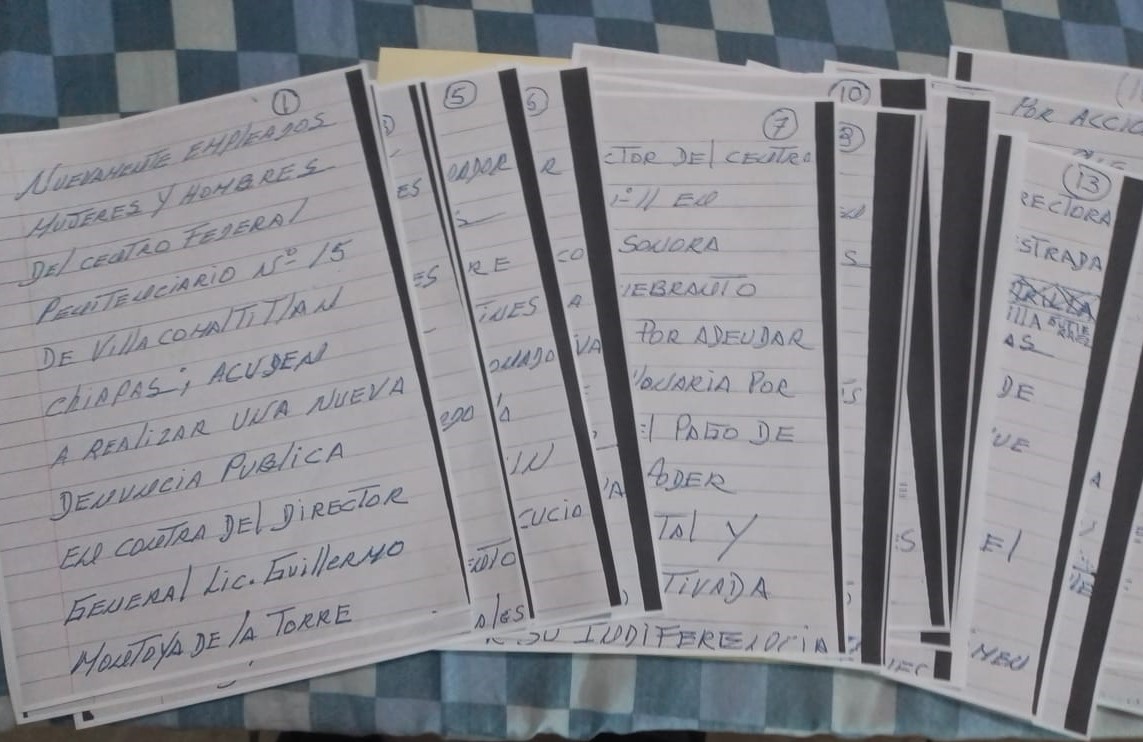 1
NUEVAMENTE EMPLEADOS
MUJERES Y HOMBRES
DEL CENTRO FEDERAL
PENITENCIARIO Nº 15
DE VILLA COMALTITLAN
CHIAPAS; ACUDEN
A REALIZAR UNA NUEVA
DENUNCIA PUBLICA
EN CONTRA DEL DIRECTOR
GENERAL LIC. GUILLERMO
MONTOYA DE LA TORRE
ES
ES
5
ADOR
RE
INES
ONADO
EGO
IN
CUCIO
ENTO
ALES
6
R
CO
A
IVA
'A
7
CTOR DEL CENTRO
Nº 11 EN
SONORA
IEBRANTO
POR ADEUDAR
IONARIA POR
EL PAGO DE
ODER
TAL Y
TIVADA
SU INDIFERENCIA
10
8
S
IS
S
IEC
POR ACCIO
13
RECTORA
STRADA
ILLA GUTIE
RREZ
AS
DE
UE
EL
MEN
A